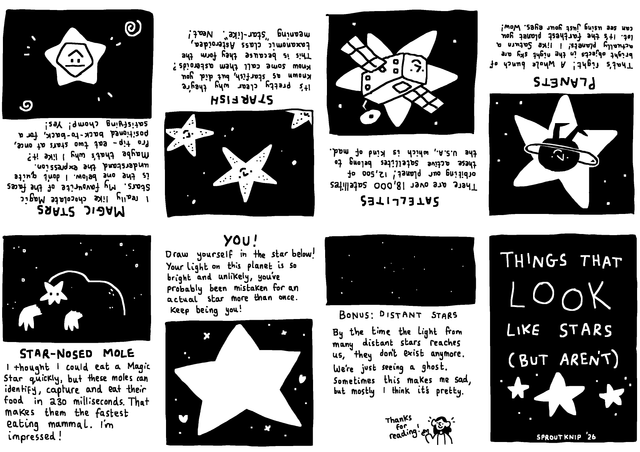 THINGS THAT
LOOK
LIKE STARS
(BUT AREN'T)
SPROUTKNIP '26
PLANETS
That's right; A whole bunch of
bright objects in the night sky are
actually planets! I like Saturn a
lot. It's the farthest planet you
can see using just your eyes. Wow!
SATELLITES
There are over 18,000 satellites
orbiting our planet! 12,500 of
these active satellites belong to
the U.S.A., which is kind of mad.
STARFISH
It's pretty clear why they're
known as starfish, but did you
know some call them asteroids?
This is because they form the
taxonomic class Asteroidea,
meaning "star-like". Neat!
MAGIC STARS
I really like chocolate Magic
Stars. My favourite of the faces
is the one below. I don't quite
understand the expression.
Maybe that's why I like it?
Pro tip - eat two stars at once,
positioned back-to-back, for a
satisfying chomp! Yes!
STAR-NOSED MOLE
I thought I could eat a Magic
Star quickly, but these moles can
identify, capture and eat their
food in 230 milliseconds. That
makes them the fastest
eating mammal. I'm
impressed!
YOU!
Draw yourself in the star below!
Your light on this planet is so
bright and unlikely, you've
probably been mistaken for an
actual star more than once.
Keep being you!
BONUS: DISTANT STARS
By the time the light from
many distant stars reaches
us, they don't exist anymore.
We're just seeing a ghost.
Sometimes this makes me sad,
but mostly I think it's pretty.
Thanks
for
reading!